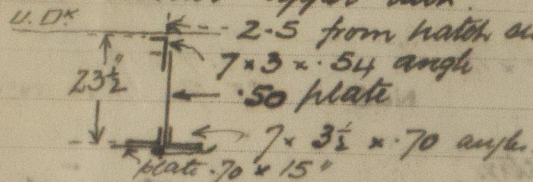 upper
U. Dk
2.5 from hatch
7 × 3 × .54 angle
23½"
.50 plate
7 × 3½ × .70 angle
plate .70 × 15"